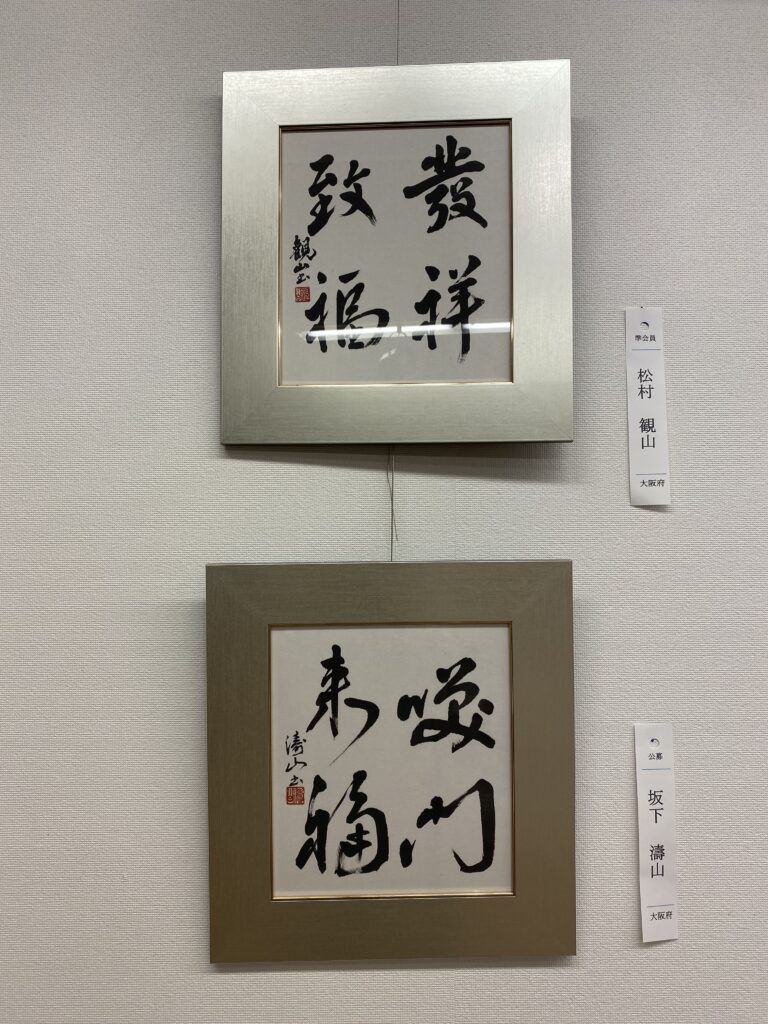 發祥
致福
観山書
準会員
松村 観山
大阪府
咲門
来福
濤山書
公募
坂下 濤山
大阪府